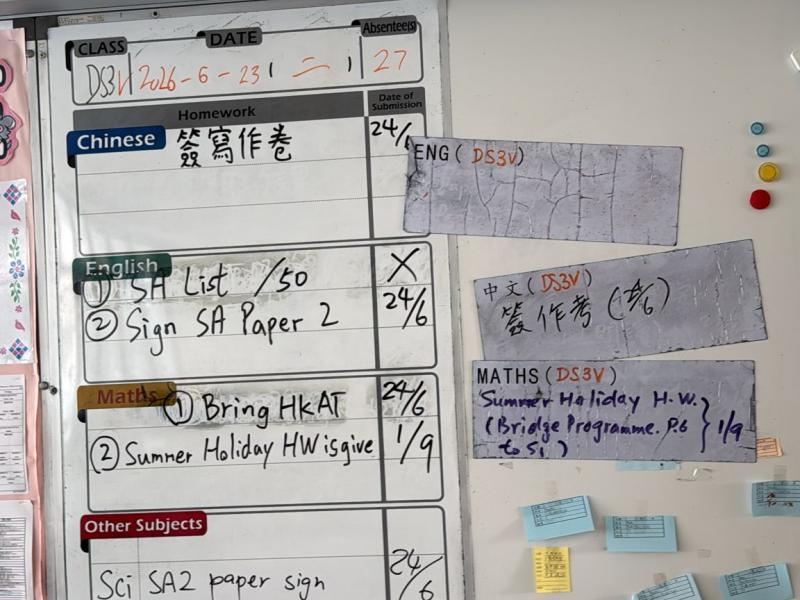 CLASS DATE Absentee(s)
DS3V 2026-6-23 ( 二 ) 27
Homework Date of Submission
Chinese 簽寫作卷 24/
English
① SA List /50 X
② Sign SA Paper 2 24/6
Maths ① Bring HKAT 24/6
② Summer Holiday HW is give 1/9
Other Subjects
Sci SA2 paper sign 24/6
ENG ( DS3V )
中文 ( DS3V )
簽作考 (24/6)
MATHS ( DS3V )
Summer Holiday H.W.
(Bridge Programme. P.6 } 1/9
to S1 )